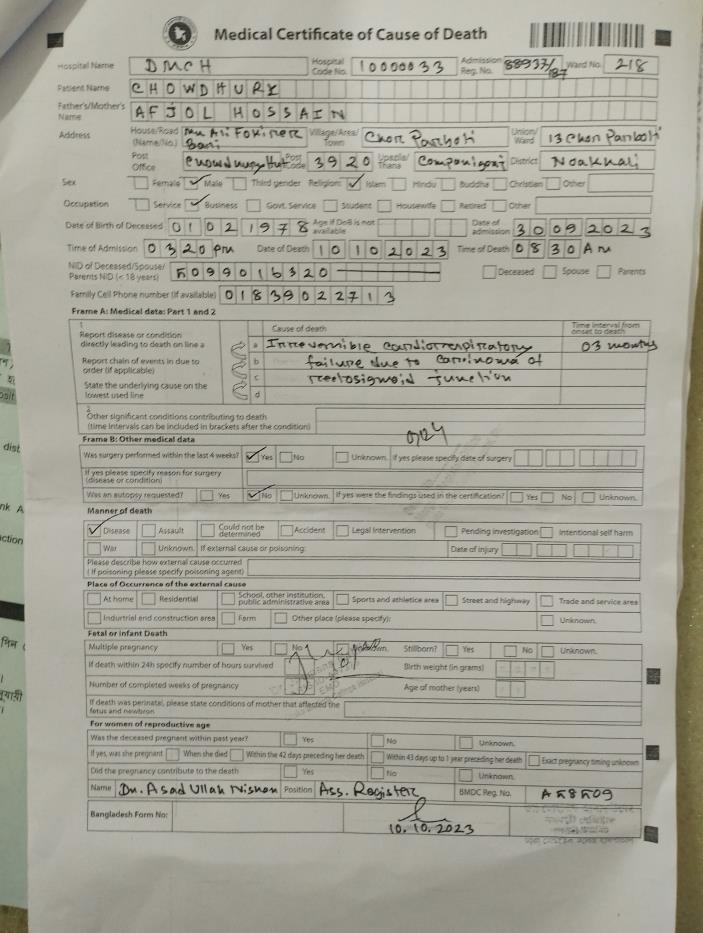 Medical Certificate of Cause of Death
Hospital Name DMCH Hospital Code No. 10000033 Admission Reg. No. 88937/187 Ward No. 218
Patient Name CHOWDHURY
Father's/Mother's Name AFJOL HOSSAIN
Address House/Road (Name/No.) Bari Village/Area/Town Char Parboti Union/Ward 13 Char Parboti
Post Office Post Code 3920 Upazila/Thana Companigonj District Noakhali
Sex Female Male Third gender Religion: Islam Hindu Buddha Christian Other
Occupation Service Business Govt. Service Student Housewife Retired Other
Date of Birth of Deceased 01021978 Age if DoB is not available Date of admission 30092023
Time of Admission 0320 pm Date of Death 10102023 Time of Death 0830 Am
NID of Deceased/Spouse/Parents NID (< 18 years) Deceased Spouse Parents
Family Cell Phone number (if available) 01839022713
Frame A: Medical data: Part 1 and 2
1 Cause of death Time interval from onset to death
Report disease or condition directly leading to death on line a a Irreversible cardiorespiratory 03 months
Report chain of events in due to order (if applicable) b failure due to carcinoma of
State the underlying cause on the lowest used line c rectosigmoid junction
d
2 Other significant conditions contributing to death (time intervals can be included in brackets after the condition)
Frame B: Other medical data
Was surgery performed within the last 4 weeks? Yes No Unknown. If yes please specify date of surgery
If yes please specify reason for surgery (disease or condition)
Was an autopsy requested? Yes No Unknown. If yes were the findings used in the certification? Yes No Unknown.
Manner of death
Disease Assault Could not be determined Accident Legal intervention Pending investigation Intentional self harm
War Unknown. If external cause or poisoning: Date of injury
Please describe how external cause occurred (If poisoning please specify poisoning agent)
Place of Occurrence of the external cause
At home Residential School, other institution, public administrative area Sports and athletics area Street and highway Trade and service area
Industrial and construction area Farm Other place (please specify): Unknown.
Fetal or infant Death
Multiple pregnancy Yes No Unknown. Stillborn? Yes No Unknown.
If death within 24h specify number of hours survived Birth weight (in grams)
Number of completed weeks of pregnancy Age of mother (years)
If death was perinatal, please state conditions of mother that affected the fetus and newborn
For women of reproductive age
Was the deceased pregnant within past year? Yes No Unknown.
If yes, was she pregnant When she died Within the 42 days preceding her death Within 43 days up to 1 year preceding her death Exact pregnancy timing unknown
Did the pregnancy contribute to the death Yes No Unknown.
Name Dr. Asad Ullah Nishan Position Ass. Register BMDC Reg. No.
Bangladesh Form No:
10.10.2023